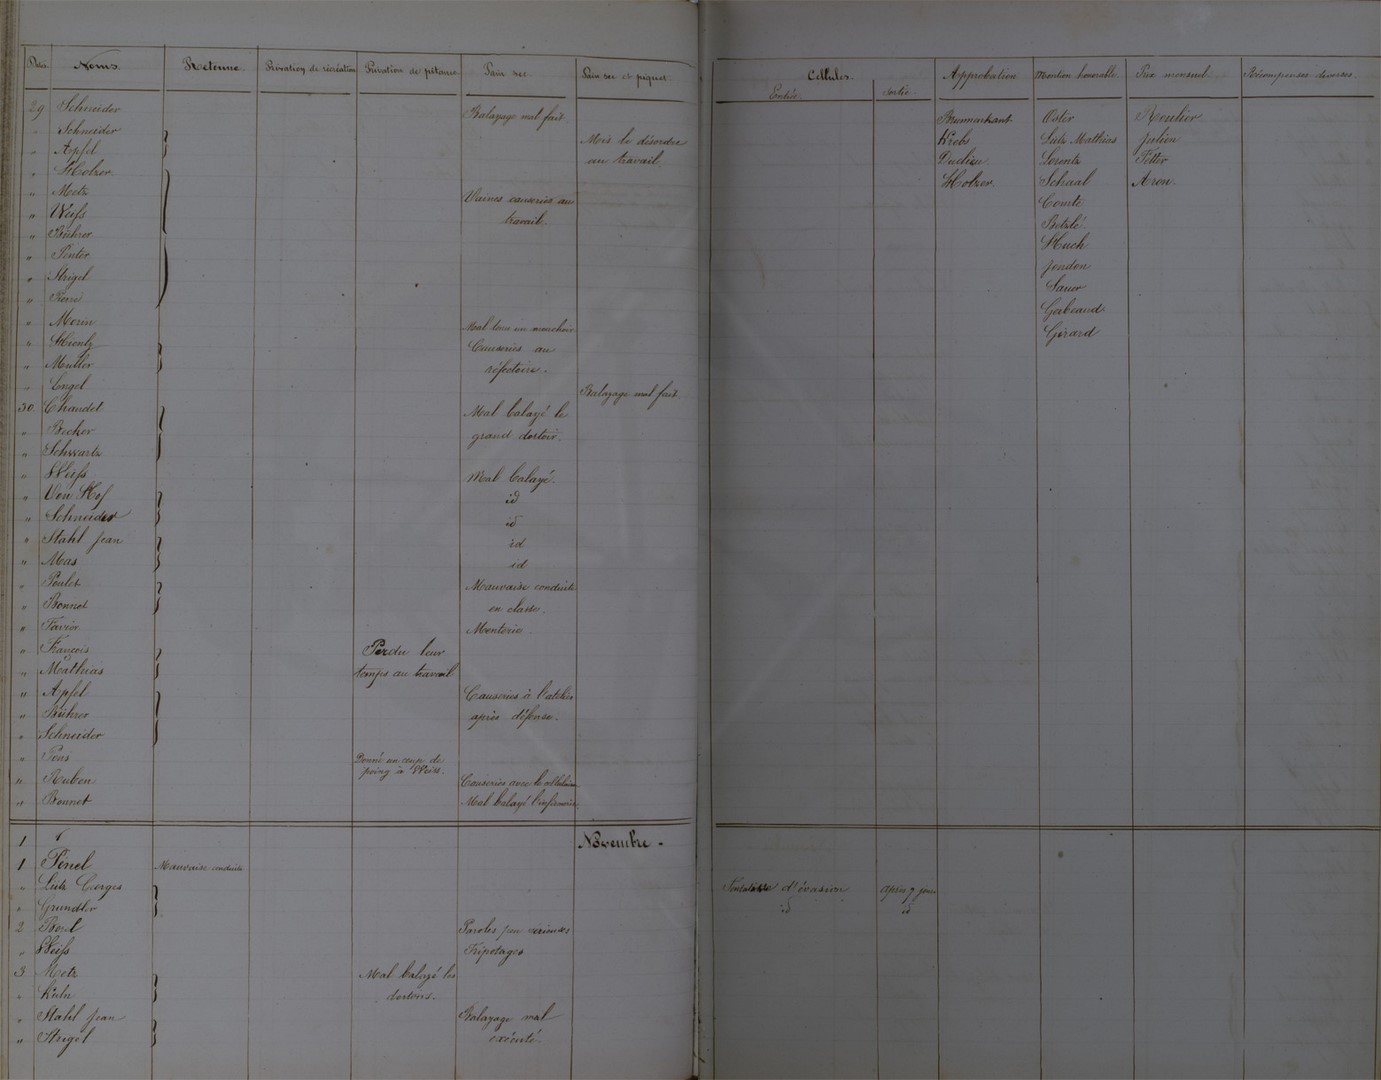 Dates Noms. Retenue. Privation de récréation Privation de pitance Pain sec. Pain sec et piquet.
29 Schneider Balayage mal fait.
" Schneider Mis le désordre
" Apfel au travail.
" Holzer
" Metz Vaines causeries au
" Weiss travail.
" Bührer
" Peuter
" Strigel
" Pierre
" Morin Mal tenu un mouchoir
" Hientz Causeries au
" Muller réfectoire.
" Engel Balayage mal fait.
30 Chaudet Mal balayé le
" Becker grand dortoir.
" Schwartz
" Weiss Mal balayé.
" Von Hof id
" Schneider id
" Stahl Jean id
" Mas id
" Poulet Mauvaise conduite
" Bonnet en classe.
" Favier Menterie.
" François Perdu leur
" Matthias temps au travail
" Apfel Causeries à l'atelier
" Bührer après défense.
" Schneider
" Pons Donné un coup de
poing à Weiss.
" Ruben Causeries avec
" Bonnet Mal balayé l'infirmerie
1 Novembre.
1 Pinel Mauvaise conduite
" Lutz Georges
" Grundler
2 Paroles peu
" Weiss Tripotages
3 Metz Mal balayé les
" Kuhn dortoirs.
" Stahl Jean Balayage mal
" Strigel exécuté.
Cellules. Approbation Mention honorable. Prix mensuel. Récompenses diverses.
Entrée. Sortie.
Oster Roulier
Krebs Lutz Matthias Julien
Lorentz Fitter
Holzer Schaal Aron
Comte
Huch
Jendon
Sauer
Gabeaud
Girard
Tentative d'évasion après 7 jours
id id